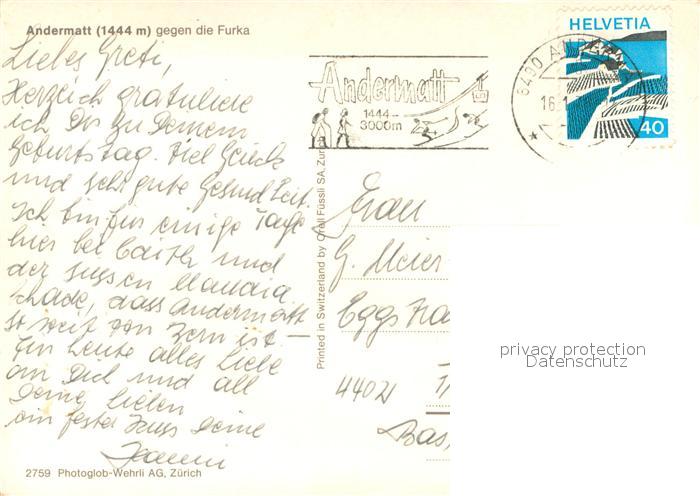 Andermatt (1444 m) gegen die Furka
Liebes Greti,
Herzlich gratuliere
ich Dir zu Deinem
Geburtstag. Viel Glück
und sehr gute Gesundheit.
Ich bin für einige Tage
hier bei und
der süssen Claudia.
Schade, dass Andermatt
so weit von ist —
Für heute alles Liebe
an Dich und all
Deine Lieben
ein fester Kuss Deine
2759 Photoglob-Wehrli AG, Zürich
Printed in Switzerland by Orell Füssli SA, Zür
Andermatt
1444–
3000m
6490 ANDERM
16.1
HELVETIA
40
Frau
G. Meier-
Eggstra
4402
Bas
privacy protection
Datenschutz